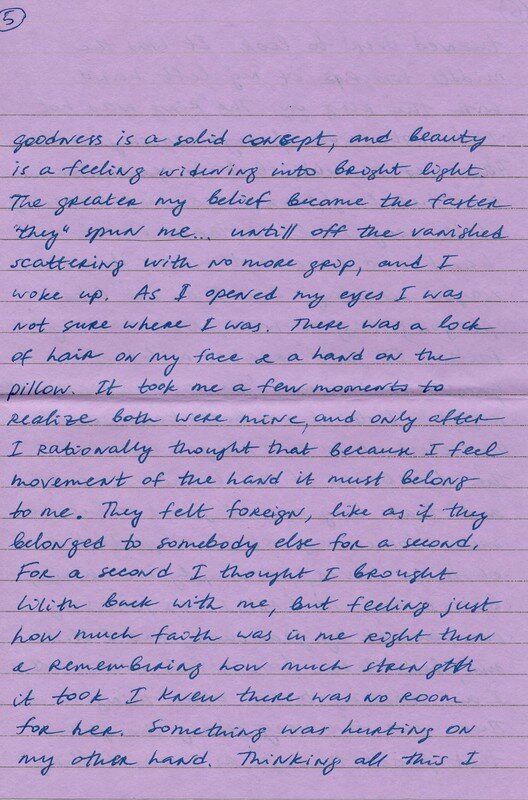 5
goodness is a solid concept, and beauty
is a feeling widening into bright light.
The greater my belief became the faster
"they" spun me... untill off the vanished
scattering with no more grip, and I
woke up. As I opened my eyes I was
not sure where I was. There was a lock
of hair on my face & a hand on the
pillow. It took me a few moments to
realize both were mine, and only after
I rationally thought that because I feel
movement of the hand it must belong
to me. They felt foreign, like as if they
belonged to somebody else for a second.
For a second I thought I brought
Lilith back with me, but feeling just
how much faith was in me right then
& remembering how much strength
it took I knew there was no room
for her. Something was hurting on
my other hand. Thinking all this I